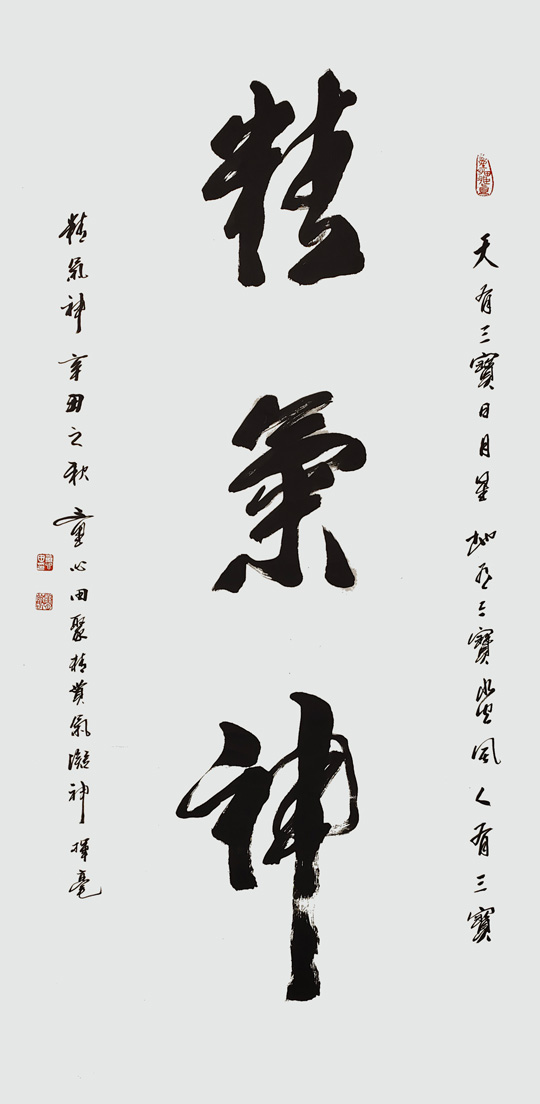 天有三寳日月星地有三寳水火風人有三寳
精氣神
精氣神辛丑之秋童心田聚精貫氣凝神揮毫